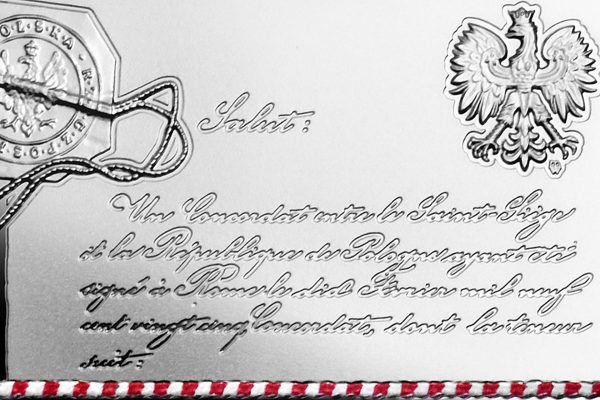 POLSKA
Salut:
Un Concordat entre le Saint-Siège
et la République de Pologne ayant été
signé à Rome le dix Février mil neuf
cent vingt cinq, Concordat, dont la teneur
suit: